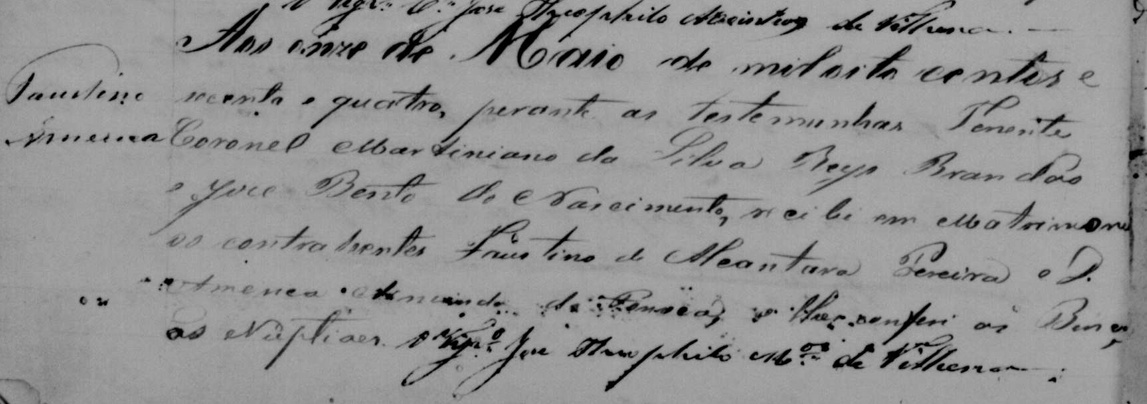 o Vigr.o C.o José Theophilo Moinhos de Vilhena.
Aos onze de Maio de mil oito centos e
Faustino
secenta e quatro, perante as testemunhas Tenente
America
Coronel Martiniano da Silva Reys Brandão
e Jose Bento do Nascimento, recibi em Matrimonio
os contrahentes Faustino de Alcantara Pereira e D.
America da Fonseca, e lhes conferi as Bençs
as Nupliaes. O Vigr.o José Theophilo M.os de Vilhena.